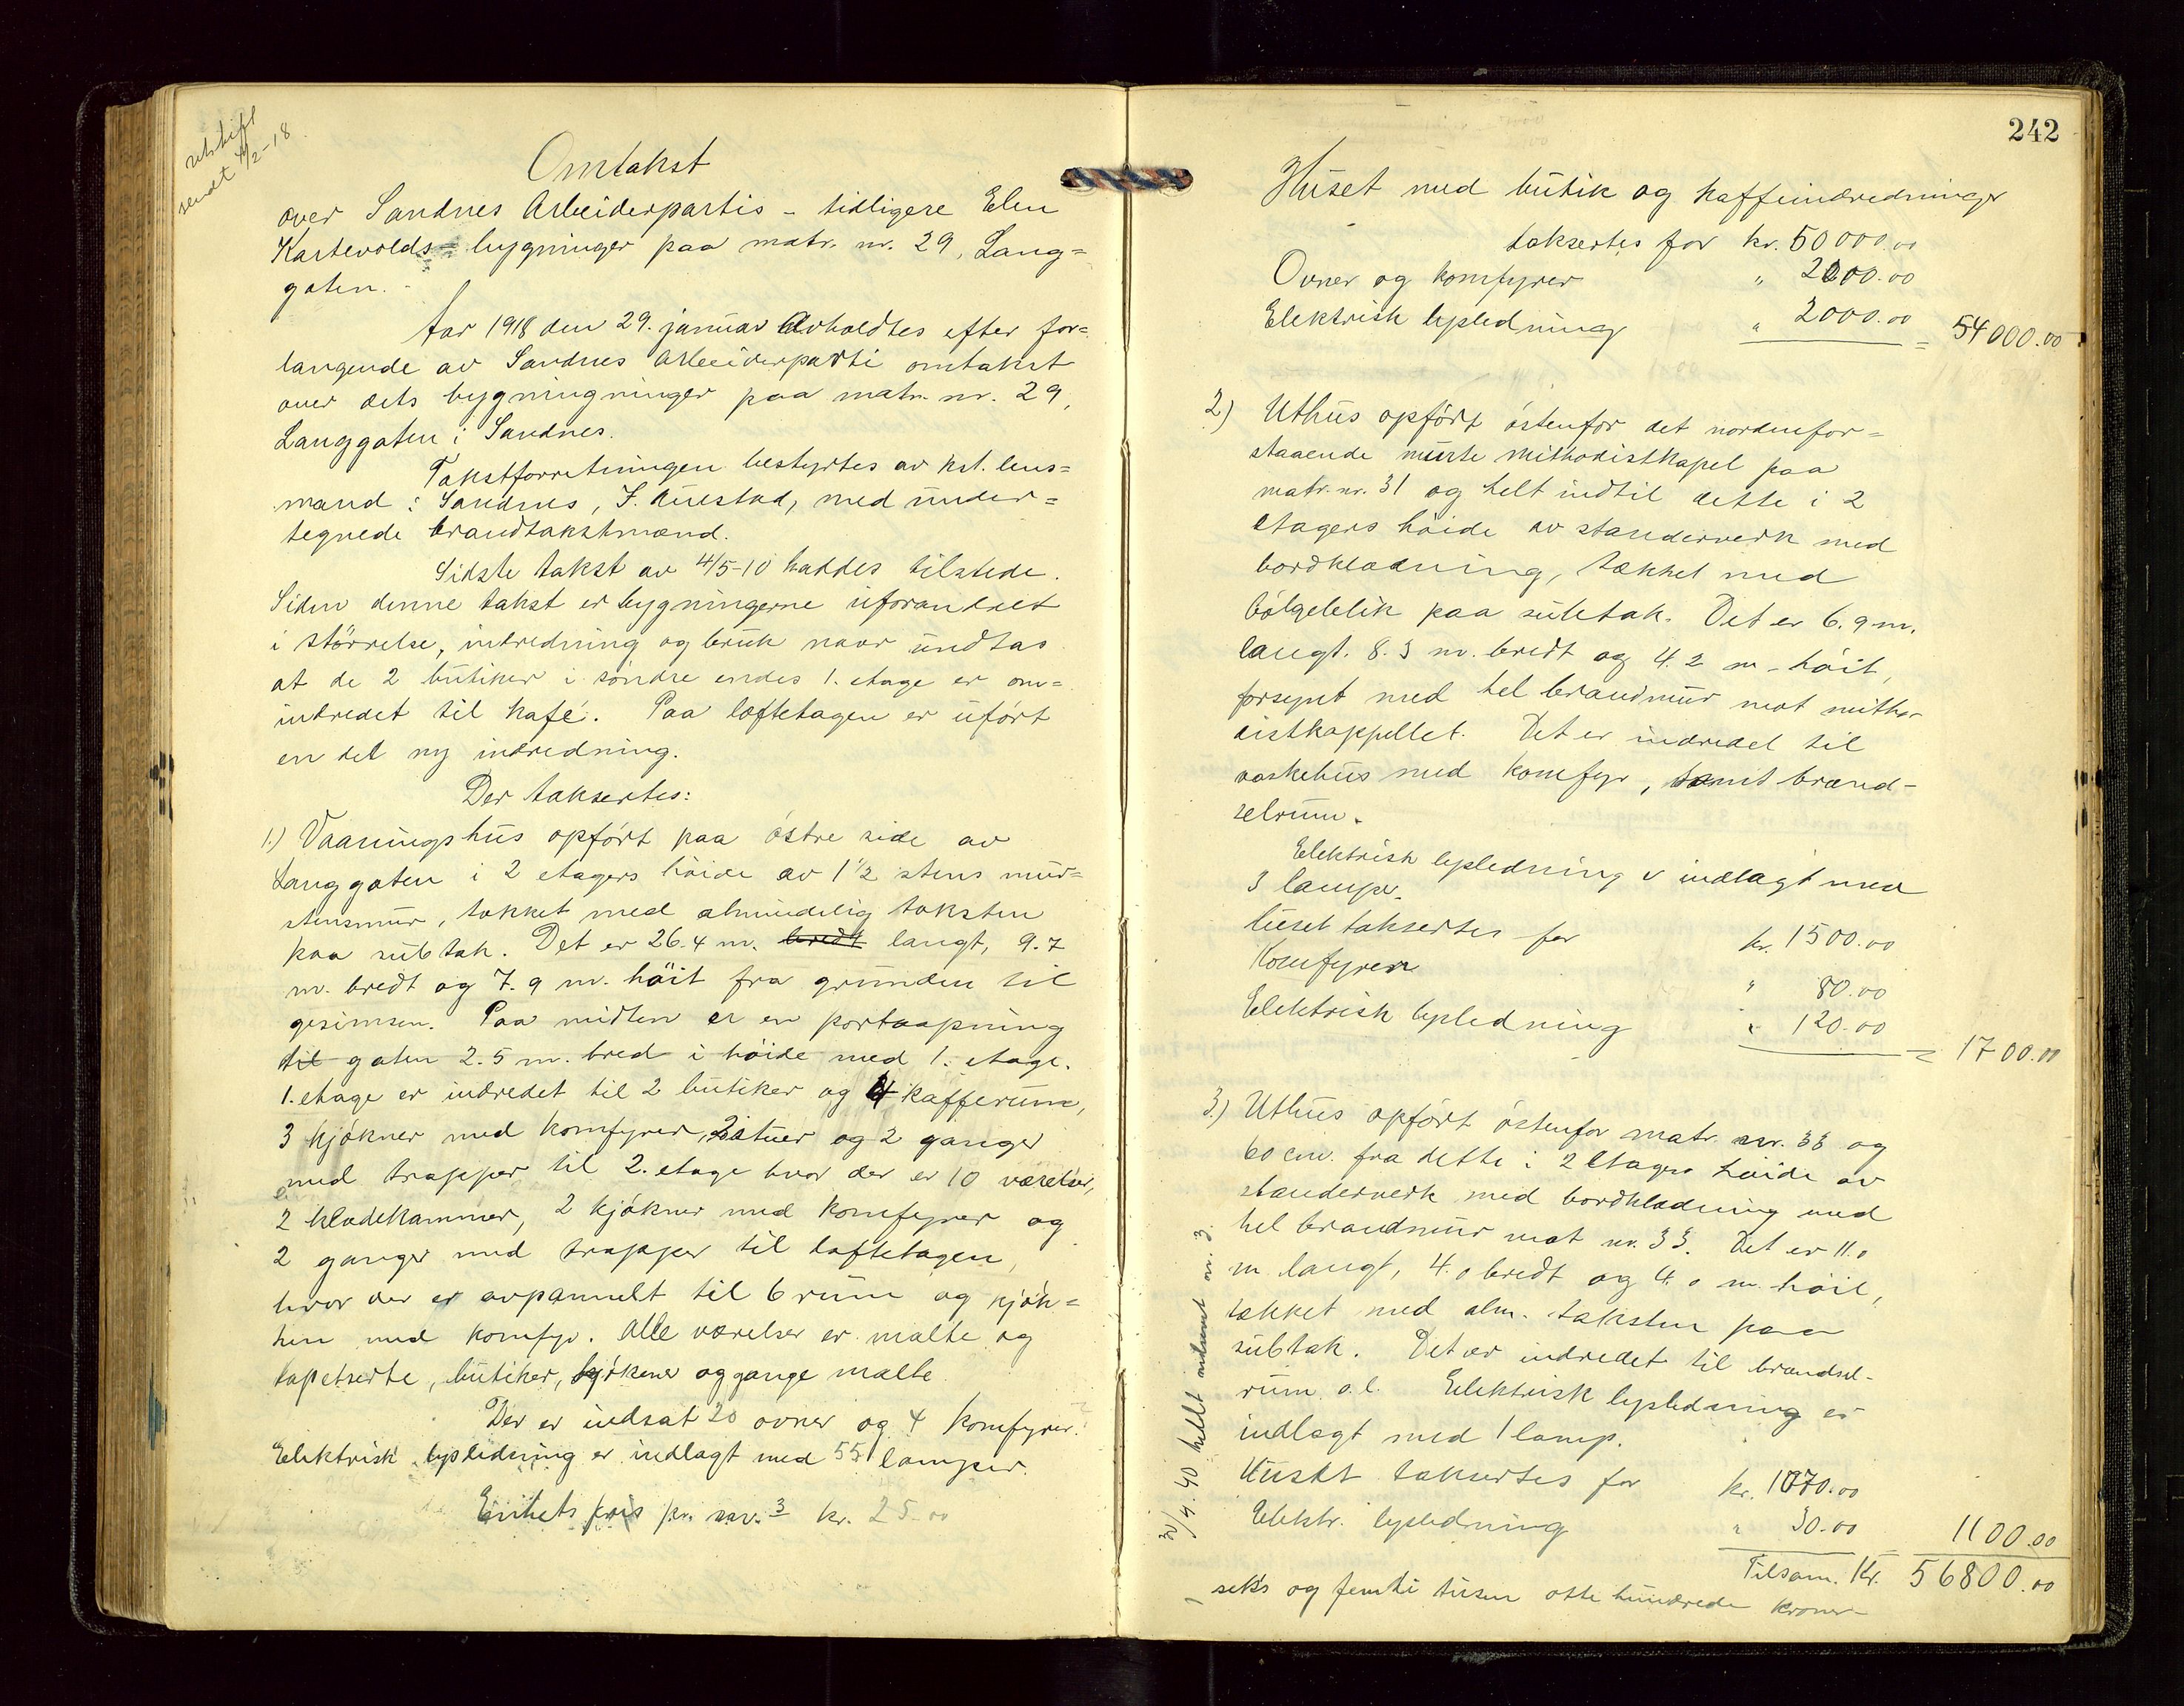 utskrift
sendt 4/2-18
Omtakst
over Sandnes Arbeiderpartis - tidligere Elen
Kartevolds - bygninger paa matr. nr. 29, Lang=
gaten.
Aar 1918 den 29. januar avholdtes efter for=
langende av Sandnes Arbeiderparti omtakst
over dets bygningninger paa matr. nr. 29,
Langgaten i Sandnes.
Takstforretningen bestyrtes av kst. lens=
mand i Sandnes, J. Auestad, med under=
tegnede brandtakstmænd.
Sidste takst av 4/5-10 haddes tilstede.
Siden denne takst er bygningerne uforandret
i störrelse, indredning og bruk naar undtas
at de 2 butiker i söndre endes 1. etage er om=
indredet til kafé. Paa loftetagen er ufört
en del ny indredning.
Der takseretes:
1.) Vaaningshus opfört paa östre side av
Langgaten i 2 etagers höide av 1½ stens mur=
stensmur, tækket med almindelig taksten
paa subtak. Det er 26.4 m. bredt langt, 9.7
m. bredt og 7.9 m. höit fra grunden til
gesimsen. Paa midten er en portaapning
til gaten 2.5 m. bred i höide med 1. etage.
1. etage er indredet til 2 butiker og 4 kafferum,
3 kjökner med komfyrer, 2 stuer og 2 ganger
med trapper til 2. etage hvor der er 10 værelser,
2 klædekammer, 2 kjökner med komfyrer og
2 ganger med trapper til loftetagen,
hvor der er avpannelt til 6 rum og kjök=
ken med komfyr. Alle værelser er malte og
tapetserte, butiker, kjökener og gange malte.
Der er indsat 20 ovner og 4 komfyrer.
Elektrisk lysledning er indlagt med 55 lamper.
Enhets pris pr. m.³ kr. 25.00
242
Huset med butik og kaffeindredninger
taksertes for kr. 50000.00
Ovner og komfyrer " 2000.00
Elektrisk lysledning " 2000.00 = 54000.00
2) Uthus opfört östenfor det nordenfor=
staaende murte methodistkapel paa
matr. nr. 31 og helt indtil dette i 2
etagers höide av standerverk med
bordklædning, tækket med
bölgeblik paa subtak. Det er 6.9 m.
langt. 8.3 m. bredt og 4.2 m. höit,
forsynt med hel brandmur mot metho-
distkappellet. Det er indredet til
vaskehus med komfyr, samt brænd-
selrum.
Elektrisk lysledning er indlagt med
3 lamper.
Huset taksertes for kr. 1500.00
Komfyren " 80.00
Elektrisk lysledning " 120.00 = 1700.00
3.) Uthus opfört östenfor matr. nr. 33 og
60 cm. fra dette i 2 etagers höide av
standerverk med bordklædning med
hel brandmur mot nr. 33. Det er 11.0
m. langt, 4.0 bredt og 4.0 m. höit,
tækket med alm. taksten paa
subtak. Det er indredet til brændsel-
rum o.l. Elektrisk lysledning er
indlagt med 1 lamp.
Huset taksertes for kr. 1070.00
Elektr. lysledning " 30.00 = 1100.00
Tilsam. Kr. 56800.00
seks og femti tusen otte hundrede kroner
30/4.40 heldt nr. 3.